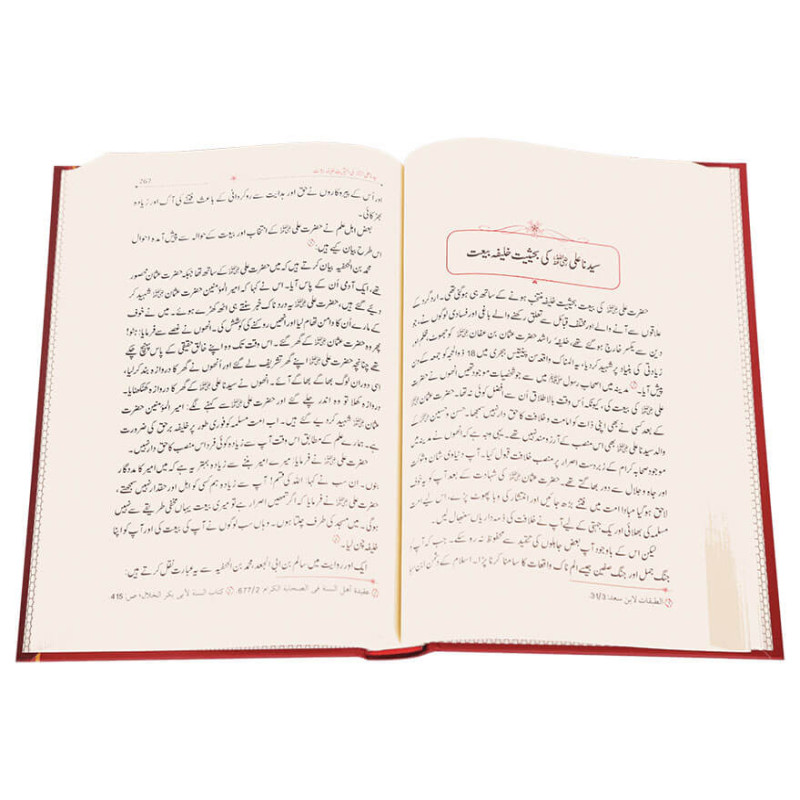 سیدنا علی رضی اللہ عنہ کی بحیثیت خلیفہ بیعت
حضرت علی رضی اللہ عنہ کی بیعت بحیثیت خلیفہ منتخب ہونے کے ساتھ ہی ہوگئی تھی۔ ارد گرد کے
علاقوں سے آنے والے اور مختلف قبائل سے تعلق رکھنے والے باغی اور فسادی لوگوں نے، جو
دین سے یکسر خارج ہوگئے تھے، خلیفۂ راشد حضرت عثمان بن عفان رضی اللہ عنہ کو جھوٹ، ظلم اور
زیادتی کی بنیاد پر شہید کر دیا، یہ المناک واقعہ سن پینتیس ہجری میں 18 ذوالحجہ کو جمعہ کے دن
پیش آیا۔ مدینہ میں اصحاب رسول ﷺ میں سے جو شخصیات موجود تھیں انھوں نے حضرت
علی رضی اللہ عنہ کی بیعت کی، کیونکہ اُس وقت بالاطلاق اُن سے افضل کوئی نہ تھا۔ حضرت عثمان رضی اللہ عنہ
کے بعد کسی نے بھی اپنی ذات کو امامت و خلافت کا حق دار نہیں سمجھا۔ حسن و حسین رضی اللہ عنہما کے
والد سیدنا علی رضی اللہ عنہ بھی اس منصب کے آرزو مند نہیں تھے۔ یہی وجہ ہے کہ انھوں نے مدینہ میں
موجود صحابہ کرام کے زبردست اصرار پر منصب خلافت قبول کیا۔ آپ دنیاوی شان و شوکت
اور جاہ و جلال سے دور بھاگتے تھے۔ حضرت عثمان رضی اللہ عنہ کی شہادت کے بعد آپ کو یہ خوف
لاحق ہوگیا مبادا امت میں فتنے بڑھ جائیں اور انتشار کی وبا پھوٹ پڑے، اس لیے امت
مسلمہ کی بھلائی اور یک جہتی کے لیے آپ نے خلافت کی ذمہ داریاں سنبھال لیں۔
لیکن اس کے باوجود آپ بعض جاہلوں کی تنقید سے محفوظ نہ رہ سکے۔ جب کہ آپ کو
جنگ جمل اور جنگ صفین جیسے الم ناک واقعات کا سامنا کرنا پڑا۔ اسلام کے دشمن ابن
① الطبقات لابن سعد: 31/3.
267
اور اُس کے پیروکاروں نے حق اور ہدایت سے روگردانی کے باعث فتنے کی آگ اور زیادہ
بھڑکائی۔
بعض اہل علم نے حضرت علی رضی اللہ عنہ کے انتخاب اور بیعت کے حوالہ سے پیش آمدہ احوال
اس طرح بیان کیے ہیں: ①
محمد بن الحنفیہ بیان کرتے ہیں کہ میں حضرت علی رضی اللہ عنہ کے ساتھ تھا جبکہ حضرت عثمان محصور
تھے، ایک آدمی اُن کے پاس آیا۔ اس نے کہا کہ امیر المؤمنین حضرت عثمان رضی اللہ عنہ شہید کر
دیے گئے ہیں، حضرت علی رضی اللہ عنہ یہ درد ناک خبر سنتے ہی اٹھ کھڑے ہوئے۔ میں نے خوف
کے مارے اُن کا دامن تھام لیا اور انھیں روکنے کی کوشش کی۔ انھوں نے غصے سے فرمایا: ہٹو!
پھر وہ حضرت عثمان رضی اللہ عنہ کے گھر گئے۔ اس وقت تک وہ اپنے خالق حقیقی کے پاس پہنچ چکے
تھے چنانچہ حضرت علی رضی اللہ عنہ اپنے گھر تشریف لے گئے اور انھوں نے گھر کا دروازہ بند کر لیا،
اسی دوران لوگ بھاگے بھاگے آئے۔ انھوں نے سیدنا علی رضی اللہ عنہ کے گھر کا دروازہ کھٹکھٹایا۔
دروازہ کھلا تو وہ اندر چلے گئے اور حضرت علی رضی اللہ عنہ سے کہنے لگے: امیر المؤمنین حضرت
عثمان رضی اللہ عنہ شہید کر دیے گئے ہیں۔ اب امت مسلمہ کو فوری طور پر خلیفہ برحق کی ضرورت
ہے۔ ہمارے علم کے مطابق اس وقت آپ سے زیادہ کوئی فرد اس منصب کا حق دار نہیں۔
حضرت علی رضی اللہ عنہ نے فرمایا: میرے امیر بننے سے زیادہ بہتر یہ ہے کہ میں امیر کا مددگار
بنوں۔ ان سب نے کہا: اللہ کی قسم! آپ سے زیادہ ہم کسی کو اہل اور حقدار نہیں سمجھتے،
حضرت علی رضی اللہ عنہ نے فرمایا کہ اگر تمھیں اصرار ہے تو میری بیعت یہاں مخفی طریقے سے نہیں
ہوگی۔ میں مسجد کی طرف چلتا ہوں۔ وہاں سب لوگوں نے آپ کی بیعت کی اور آپ کو اپنا
خلیفہ چن لیا۔ ②
ایک اور روایت میں سالم بن ابی الجعد، محمد بن الحنفیہ سے یہ عبارت نقل کرتے ہیں:
① عقيدة أهل السنة في الصحابة الكرام: 677/2. ② كتاب السنة لأبي بكر الخلال، ص: 415.